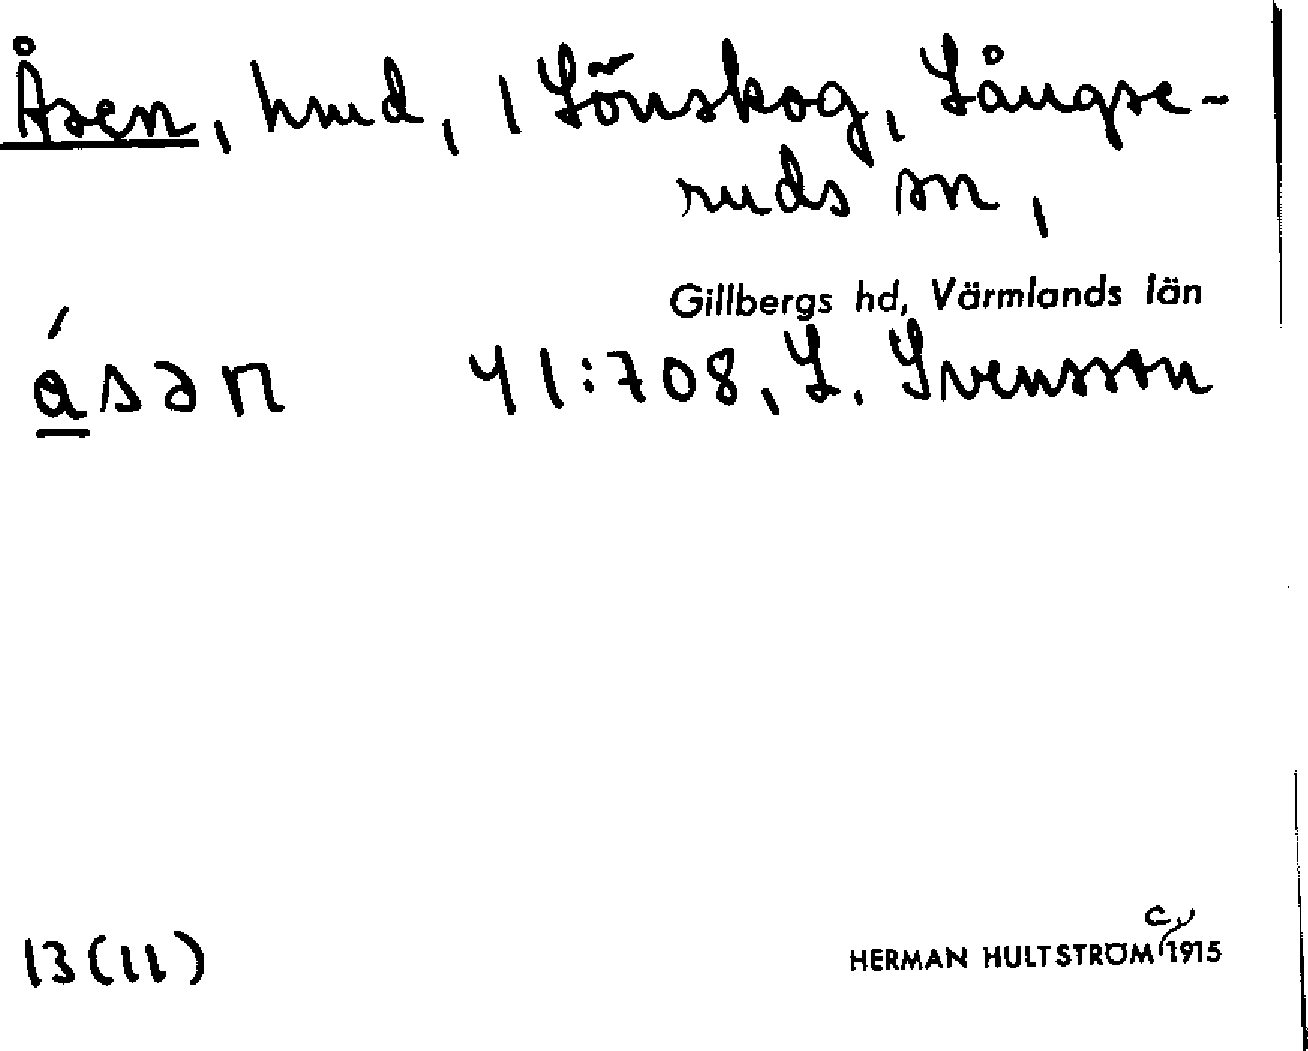 Åsen, hmd, 1 Lönskog, Långse-
ruds sn,
Gillbergs hd, Värmlands län
ásən 41:708, L. Svensson
13(11)
HERMAN HULTSTRÖM 1915